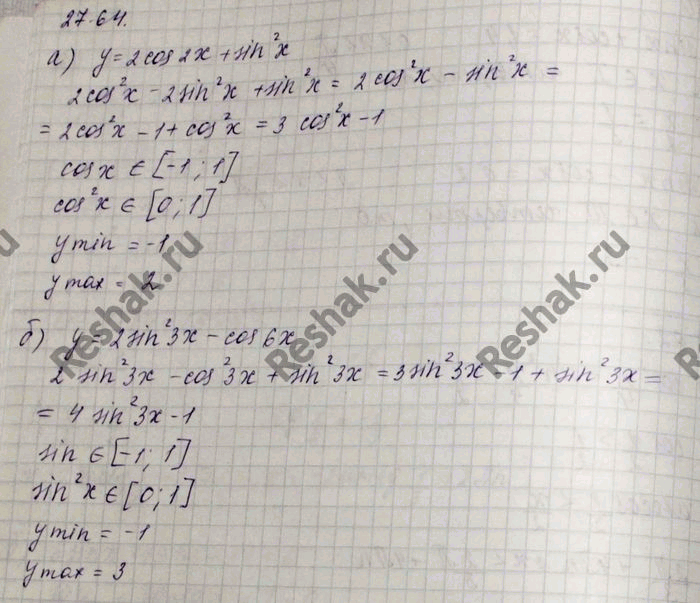 27.64.
а) y = 2 cos 2x + sin²x
2cos²x - 2sin²x + sin²x = 2 cos²x - sin²x =
= 2cos²x - 1 + cos²x = 3 cos²x - 1
cos x ∈ [-1; 1]
cos²x ∈ [0; 1]
y min = -1
y max = 2
б) y = 2 sin²3x - cos 6x
2 sin²3x - cos²3x + sin²3x = 3 sin²3x - 1 + sin²3x =
= 4 sin²3x - 1
sin ∈ [-1; 1]
sin²x ∈ [0; 1]
y min = -1
y max = 3
Reshak.ru
Reshak.ru
Reshak.ru